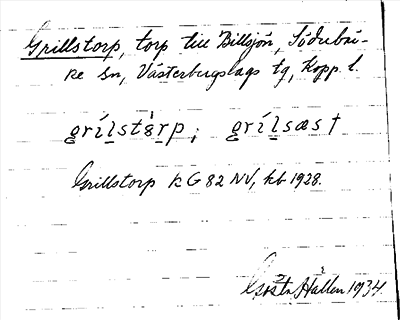 Grillstorp, torp till Billsjön, Söderbär-
ke sn, Västerbergslags tg, Kopp. l.
grílstàrp; grílsæst
Grillstorp kG 82 NV, kb 1928.
Gösta Hallén 1934.